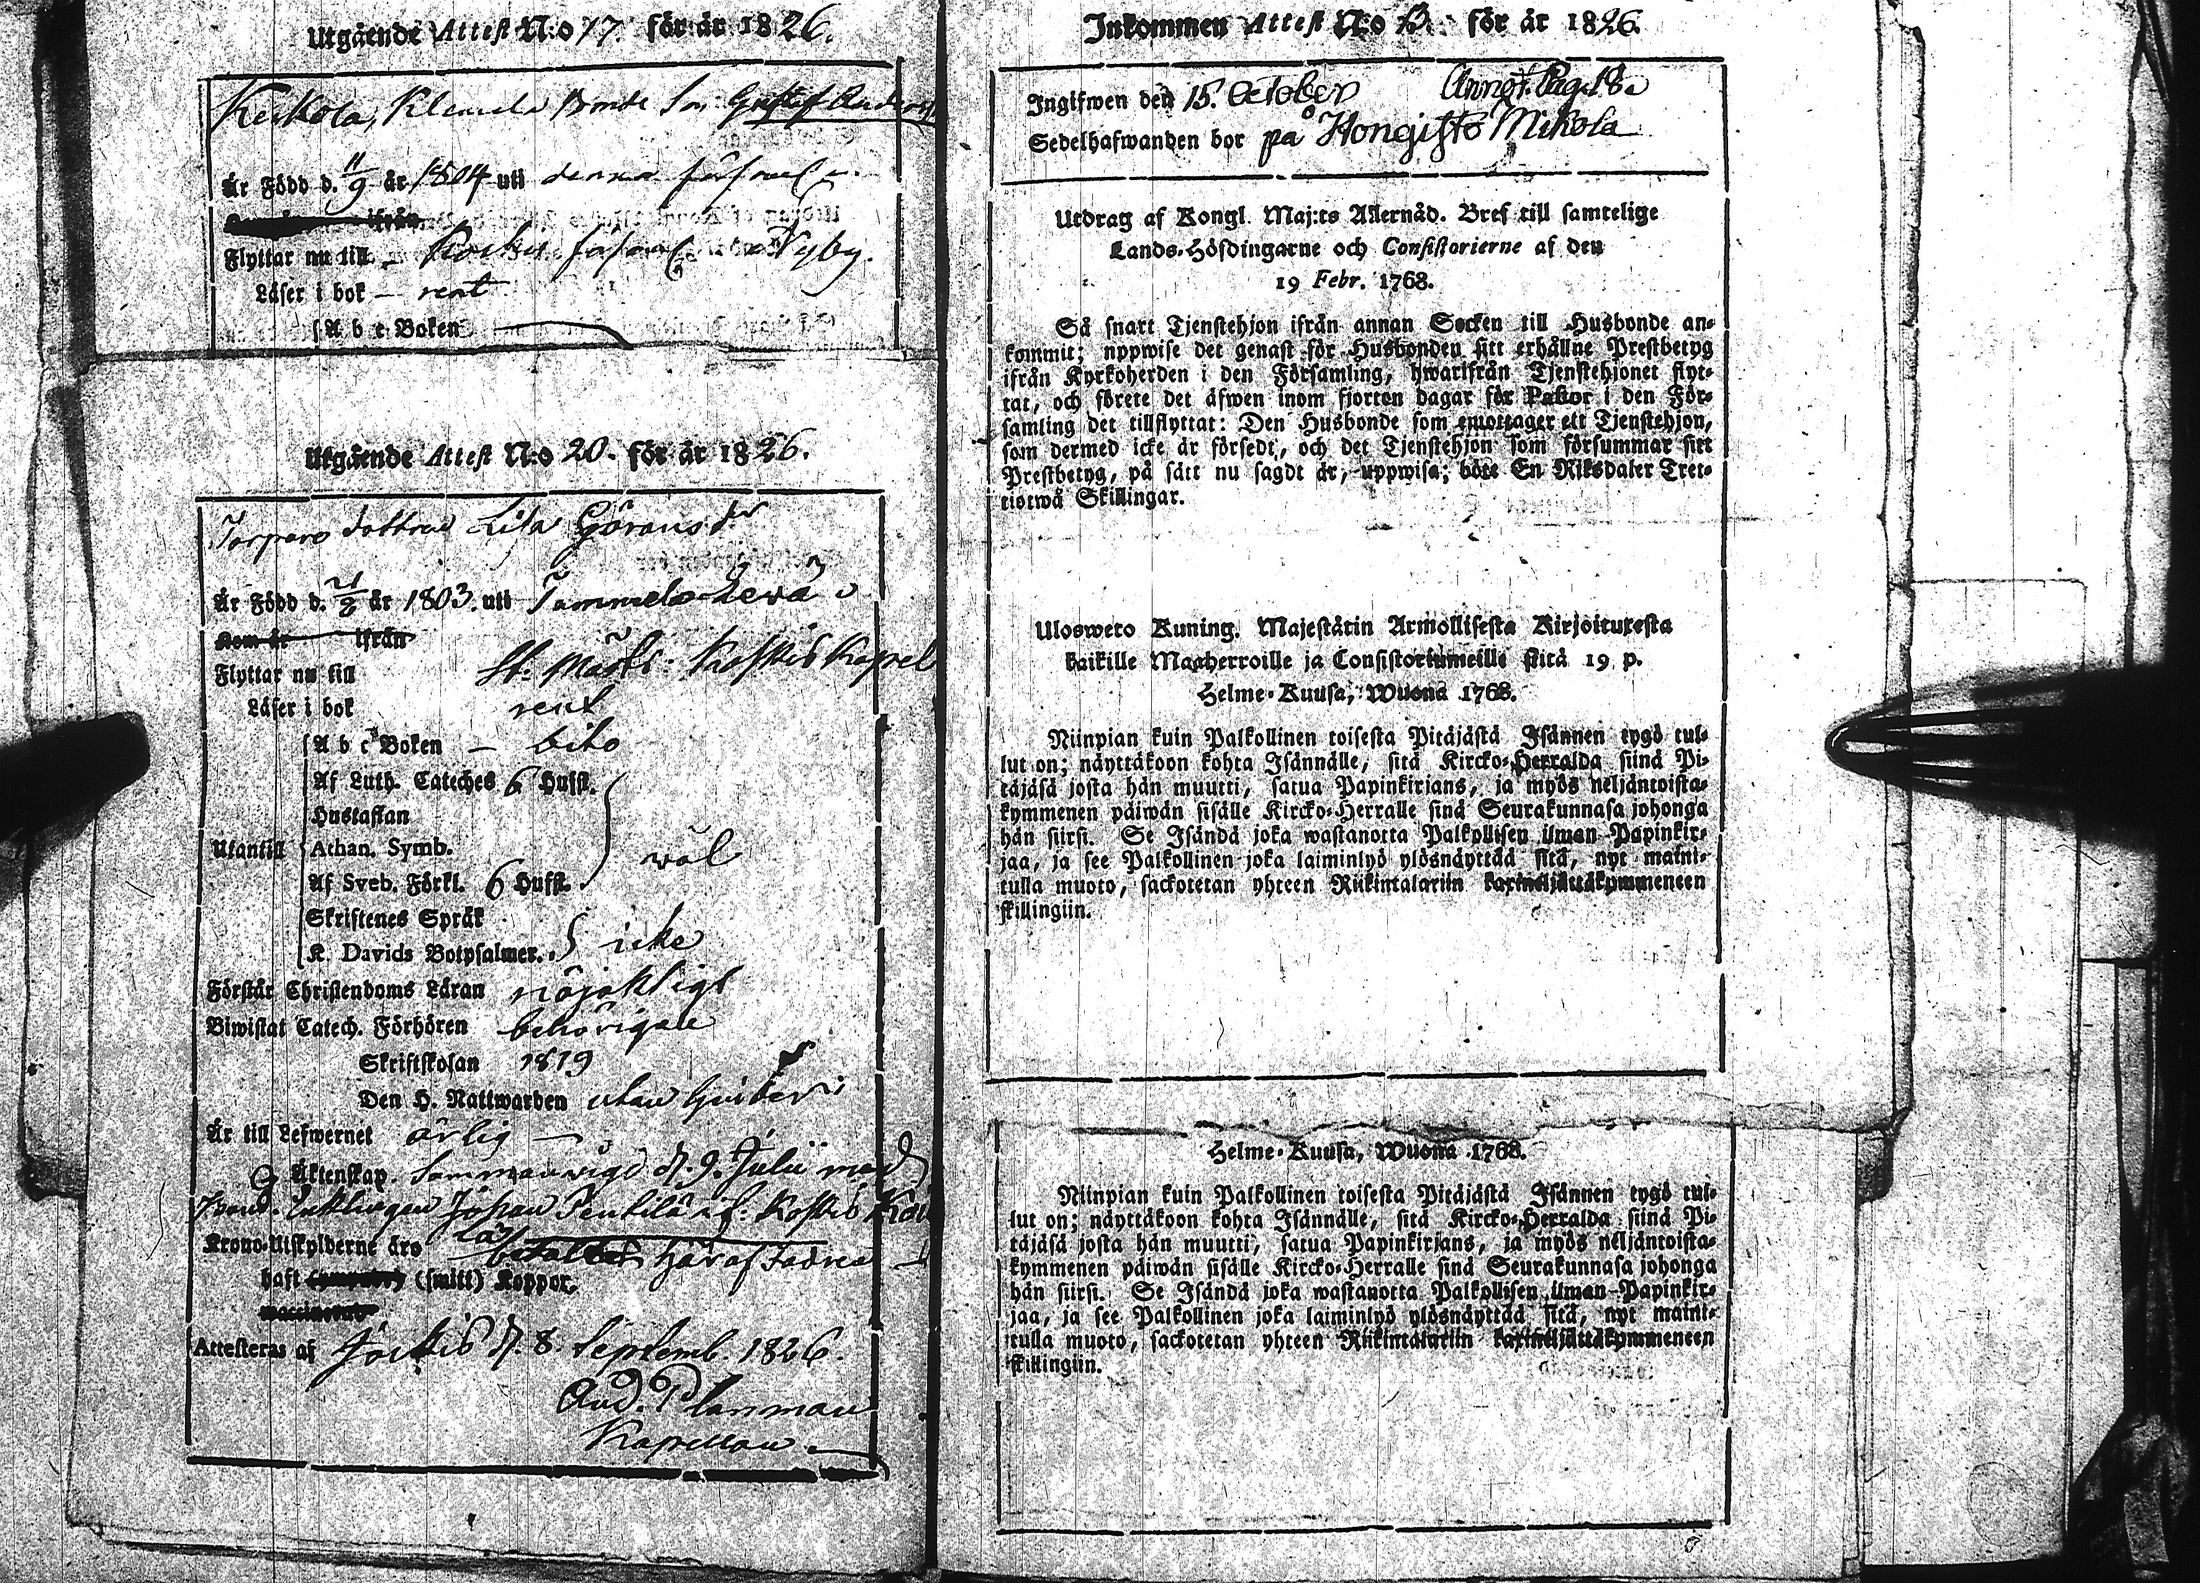 Utgående Attest N:o 17. för år 1826.
Keikola, Klemela Bonde Son Gustaf Anders
Är Född d. 11/9 år 1804 uti denna förs
ifrån
Flyttar nu till Koskis Nyby.
Läser i bok – rent
A b c Boken
Utgående Attest N:o 20. för år 1826.
Torpare dottren Lisa Göransdr
Är Född d. /2 år 1803. uti Tammela Lewä
Kom år ifrån
Flyttar nu till St. Mårts: Koskis Kapel
Läser i bok rent
A b c Boken – dito
Af Luth. Cateches 6 Hufst.
Hustaflan
Utantill Athan. Symb. wäl
Af Sveb. Förkl. 6 Hufst.
Skriftenes Språk
K. Davids Botpsalmer. icke
Förstår Christendoms Läran nöjaktigt
Biwistat Catech. Förhören behörigen
Skriftskolan 1819
Den H. Nattwarden utan hinder
Är till Lefwernet ärlig –
Äktenskap. Sammanvigd d. 9. Julii med
Johan Penttilä i St: Koskis Kap
Krono-Utskylderne äro
haft (smitt) Koppor.
Attesteras af Jockis d. 8. Septemb. 1826.
And. Planman
Kapellan.
Inkommen Attest N:o 13. för år 1826.
Ingifwen den 15. October Annot. Pag. 18
Sedelhafwanden bor på Hongisto Mikola
Utdrag af Kongl. Maj:ts Allernåd. Bref till samtelige
Lands-Höfdingarne och Consistorierne af den
19 Febr. 1768.
Så snart Tjenstehjon ifrån annan Socken till Husbonde an-
kommit; uppwise det genast för Husbonden sitt erhållne Prestbetyg
ifrån Kyrkoherden i den Församling, hwarifrån Tjenstehjonet flyt-
tat, och förete det äfwen inom fjorton dagar för Pastor i den För-
samling det tillflyttat: Den Husbonde som emottager ett Tjenstehjon,
som dermed icke är försedt, och det Tjenstehjon som försummar sitt
Prestbetyg, på sätt nu sagdt är, uppwisa; böte En Riksdaler Tret-
tiotwå Skillingar.
Ulosweto Kuning. Majestätin Armollisesta Kirjoituxesta
kaikille Maaherroille ja Consistoriumeille siitä 19 p.
Helme-Kuusa, Wuona 1768.
Niinpian kuin Palkollinen toisesta Pitäjästä Isännen tygö tul-
lut on; näyttäköön kohta Isännälle, sitä Kircko-Herralda siinä Pi-
täjäsä josta hän muutti, satua Papinkirjans, ja myös neljäntoista-
kymmenen päiwän sisälle Kircko-Herralle sinä Seurakunnasa johonga
hän siirsi. Se Isändä joka wastanotta Palkollisen ilman Papinkir-
jaa, ja see Palkollinen joka laiminlyö ylösnäyttää sitä, nyt maini-
tulla muoto, sackotetan yhteen Riikintalariin kaxineljättäkymmeneen
skillingiin.
Helme-Kuusa, Wuona 1768.
Niinpian kuin Palkollinen toisesta Pitäjästä Isännen tygö tul-
lut on; näyttäköön kohta Isännälle, sitä Kircko-Herralda siinä Pi-
täjäsä josta hän muutti, satua Papinkirjans, ja myös neljäntoista-
kymmenen päiwän sisälle Kircko-Herralle sinä Seurakunnasa johonga
hän siirsi. Se Isändä joka wastanotta Palkollisen ilman Papinkir-
jaa, ja see Palkollinen joka laiminlyö ylösnäyttää sitä, nyt maini-
tulla muoto, sackotetan yhteen Riikintalariin kaxineljättäkymmeneen
skillingiin.